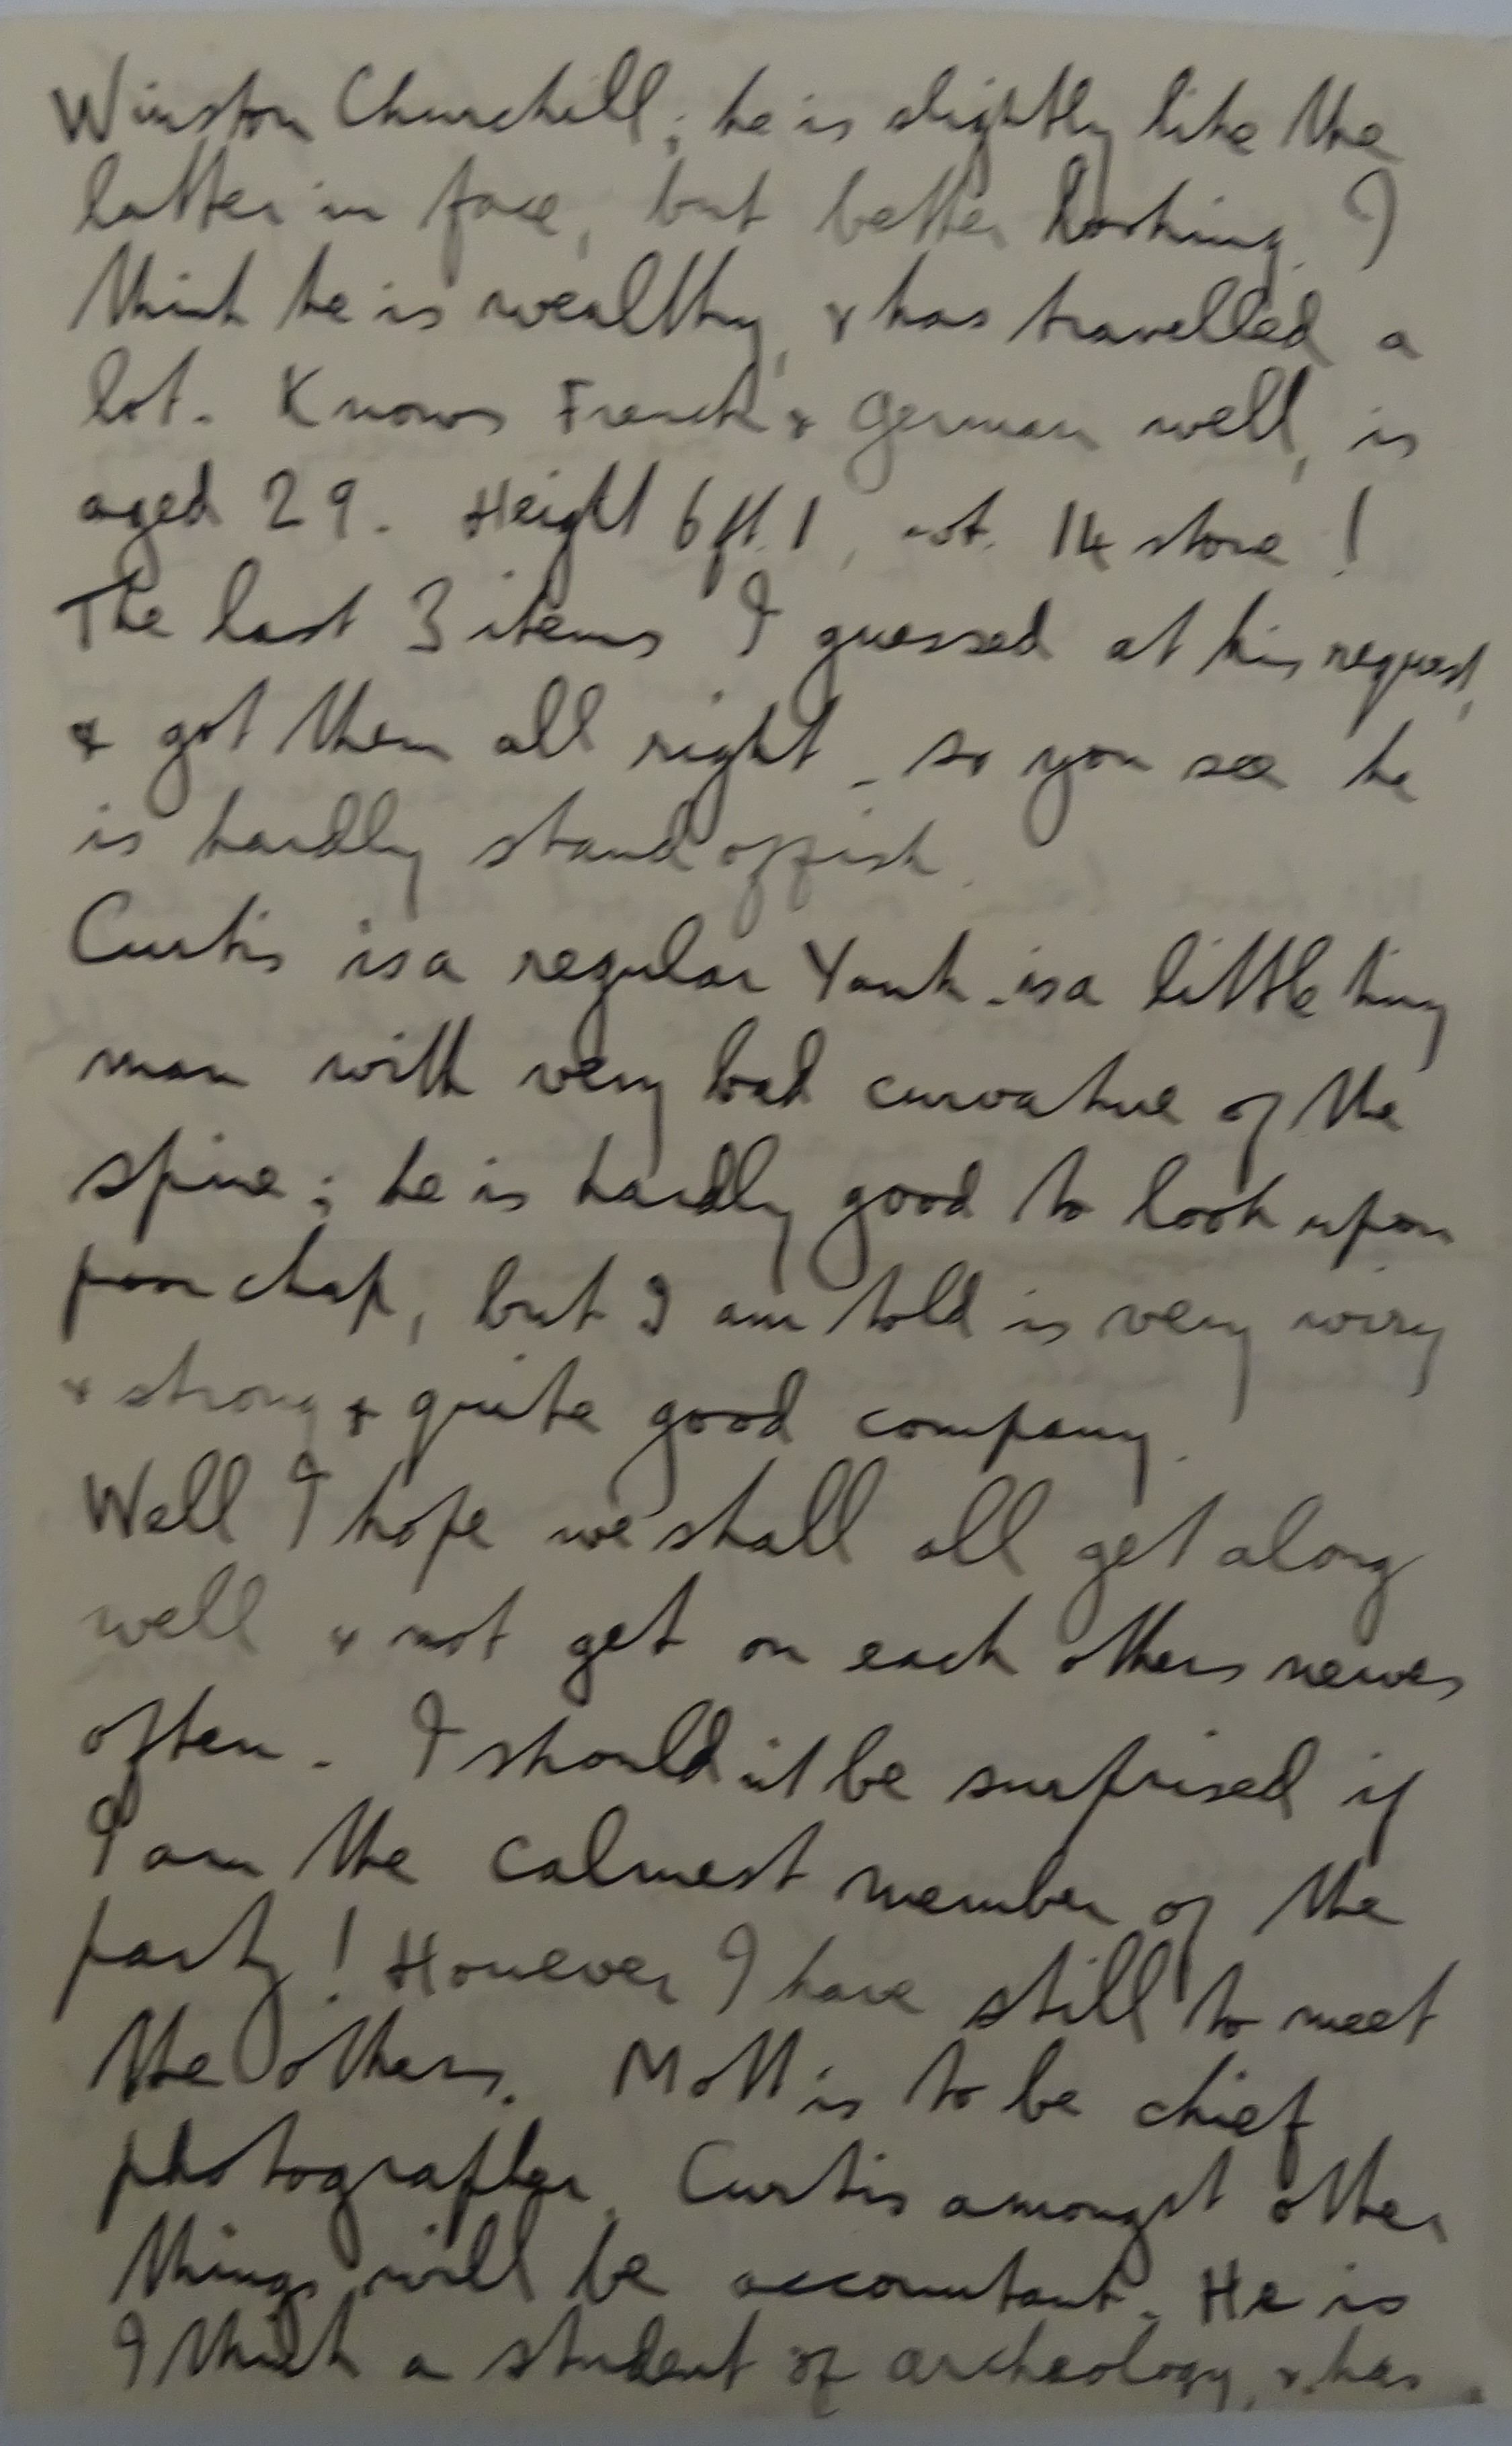 Winston Churchill; he is slightly like the
latter in face, but better looking. I
think he is wealthy, & has travelled a
lot. Knows French & German well, is
aged 29. Height 6 ft. 1, wt. 14 stone!
The last 3 items I guessed at his request,
& got them all right - so you see he
is hardly stand offish.
Curtis is a regular Yank - is a little tiny
man with very bad curvature of the
spine; he is hardly good to look upon
poor chap, but I am told is very wiry
& strong & quite good company.
Well I hope we shall all get along
well & not get on each others nerves
often. I shouldn't be surprised if
I am the calmest member of the
party! However I have still to meet
the others. Mott is to be chief
photographer, Curtis amongst other
things will be accountant. He is
I think a student of archeology, & has